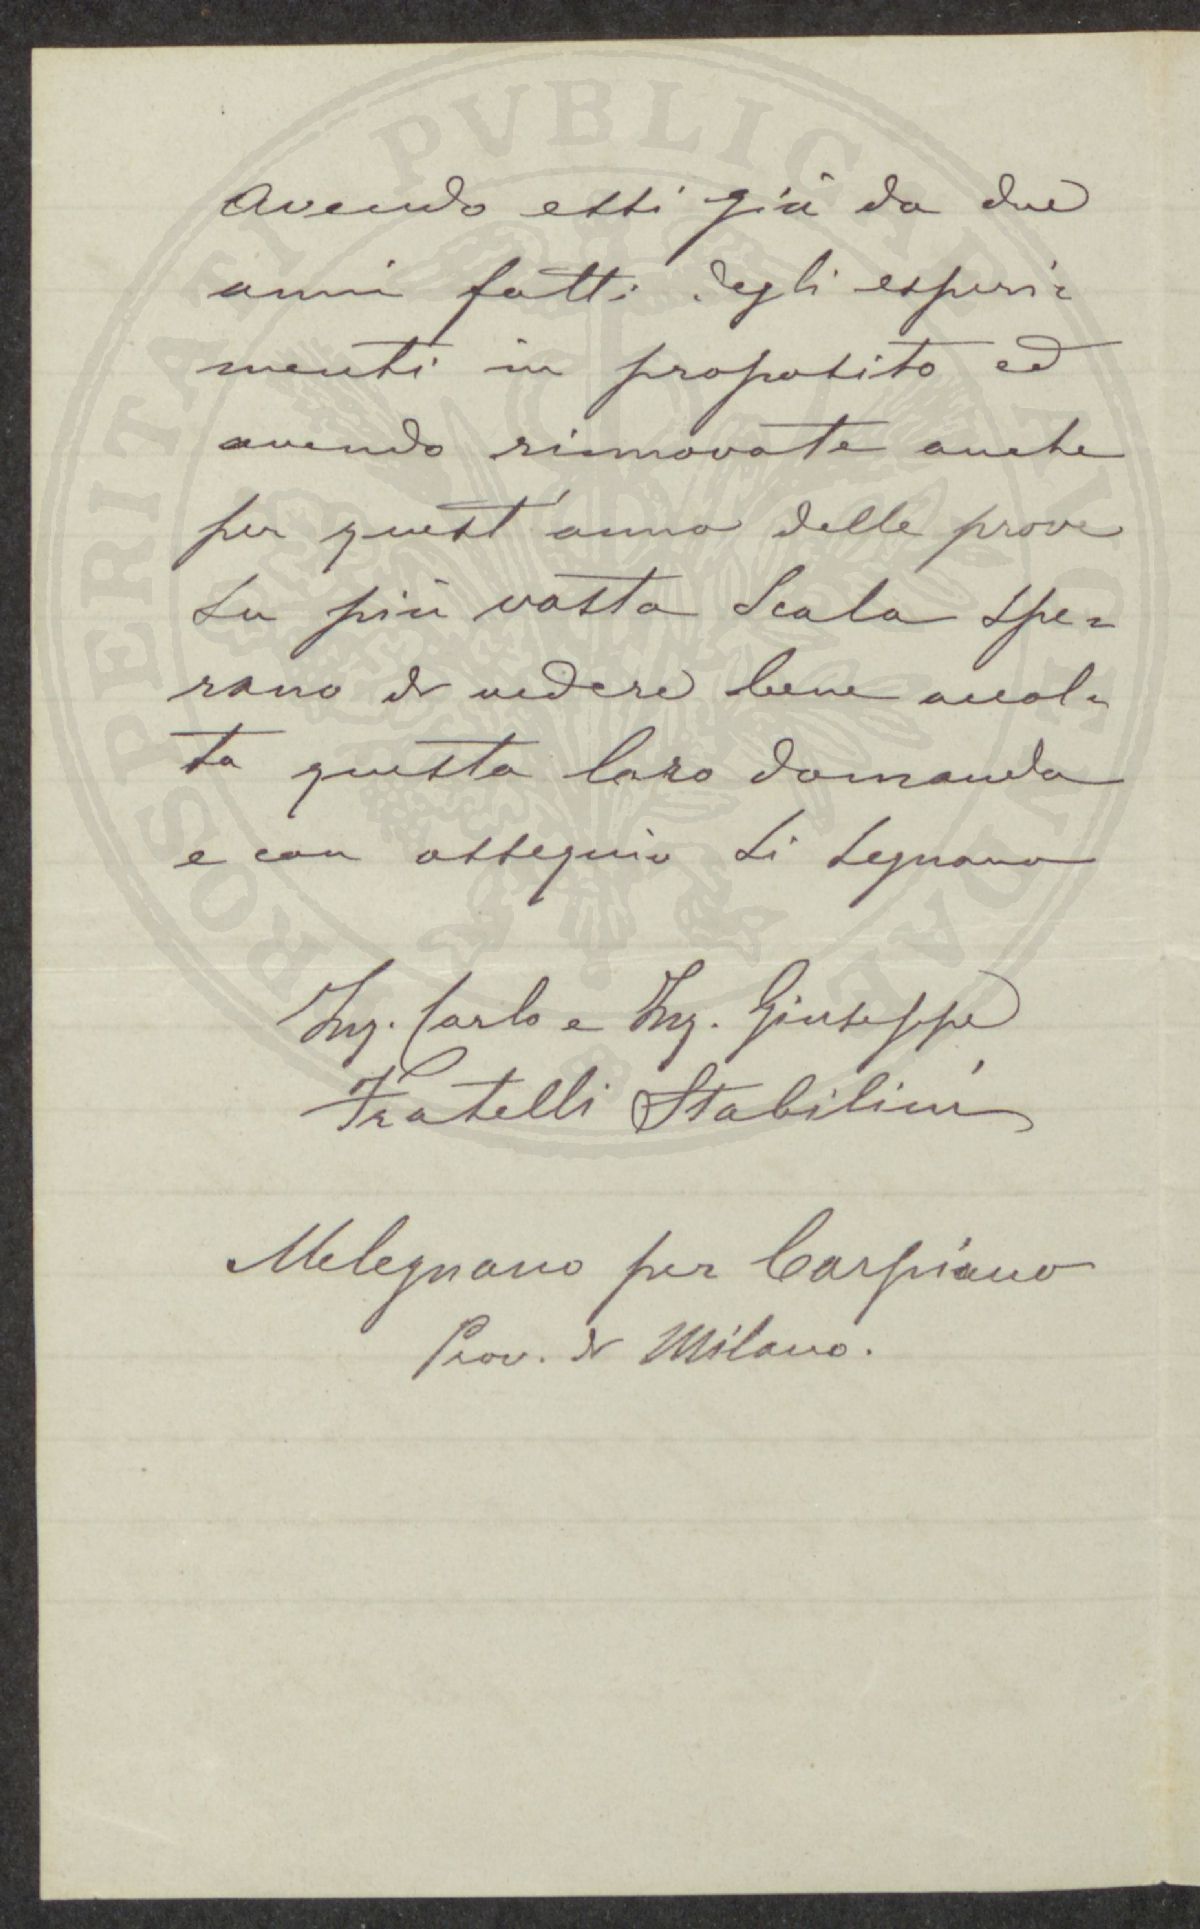 Avendo essi già da due
anni fatti degli esperi=
menti in proposito ed
avendo rinnovate anche
per quest'anno delle prove
su più vasta scala spe=
rano di vedere bene accol=
ta questa loro domanda
e con ossequio si segnano
Ing. Carlo e Ing. Giuseppe
Fratelli Stabilini
Melegnano per Carpiano
Prov. di Milano.
PROSPERITATI PVBLICAE AVGENDAE